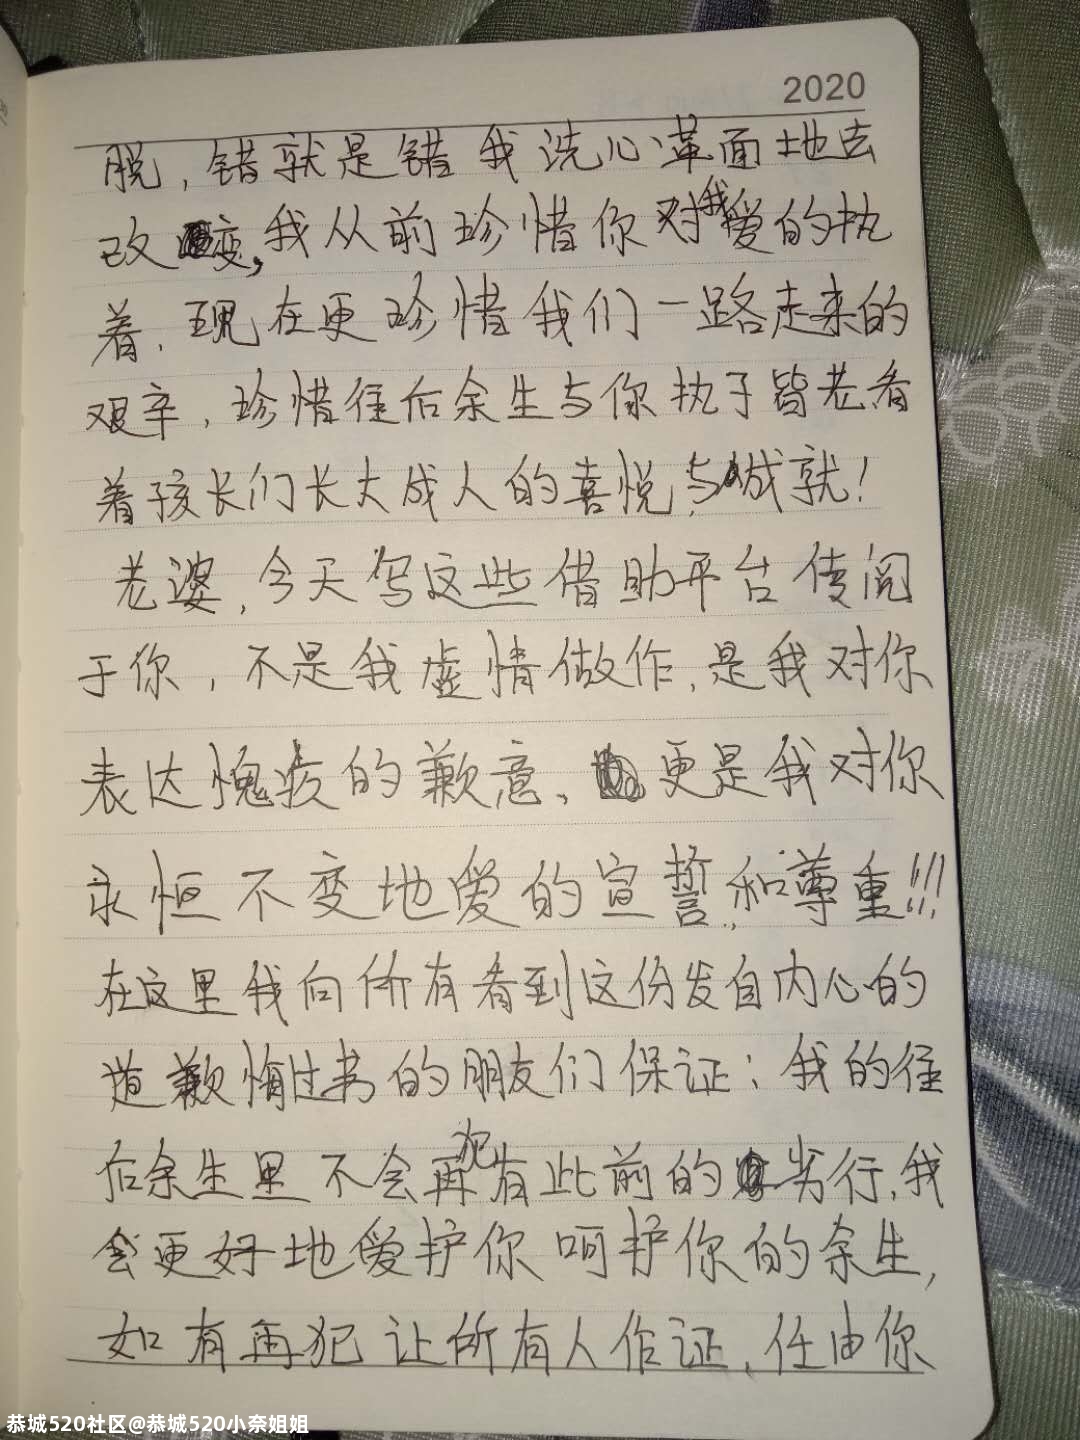 2020
脱，错就是错我洗心革面地去
改变,我从前珍惜你对我爱的执
着，现在更珍惜我们一路走来的
艰辛，珍惜往后余生与你执子皆老看
着孩长们长大成人的喜悦,与成就！
老婆,今天写这些借助平台传阅
于你，不是我虚情做作,是我对你
表达愧疚的歉意、更是我对你
永恒不变地爱的宣誓,和尊重!!!
在这里我向所有看到这份发自内心的
道歉悔过书的朋友们保证：我的往
后余生里不会再犯有此前的劣行,我
会更好地爱护你呵护你的余生,
如有再犯让所有人作证,任由你
恭城520社区@恭城520小奈姐姐